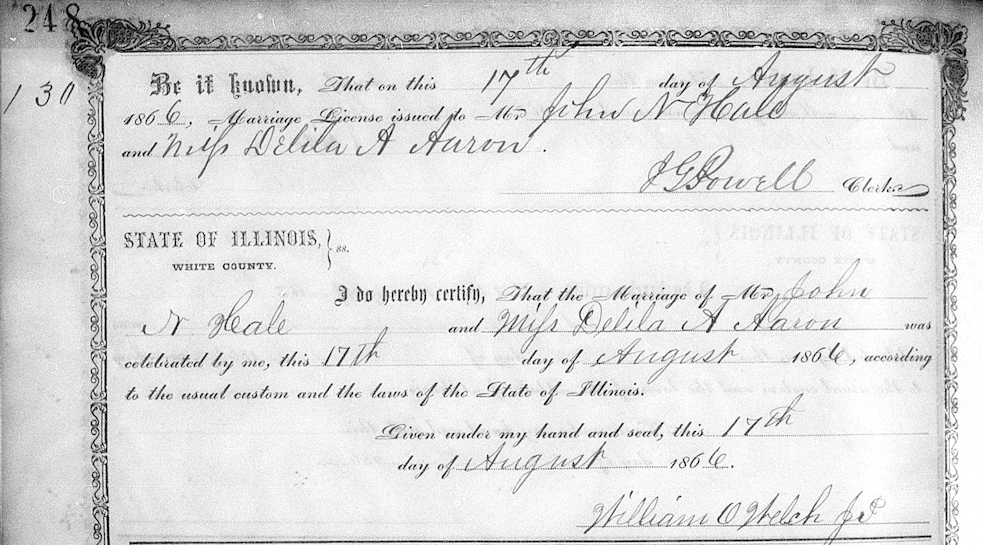 248
130
Be it known, That on this 17th day of August
1866, Marriage License issued to Mr John N Hale
and Miss Delila A Aaron.
J G Powell Clerk.
STATE OF ILLINOIS, } ss.
WHITE COUNTY.
I do hereby certify, That the Marriage of Mr John
N Hale and Miss Delila A Aaron was
celebrated by me, this 17th day of August 1866, according
to the usual custom and the laws of the State of Illinois.
Given under my hand and seal, this 17th
day of August 1866.
William O Welch J P